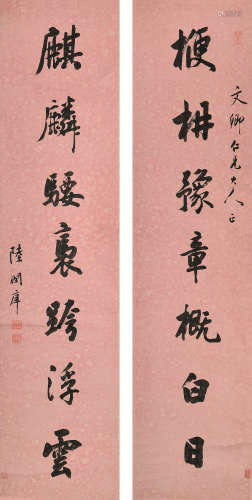 文卿仁兄大人正
楩枬豫章概白日
麒麟騕褭跨浮雲
陸潤庠